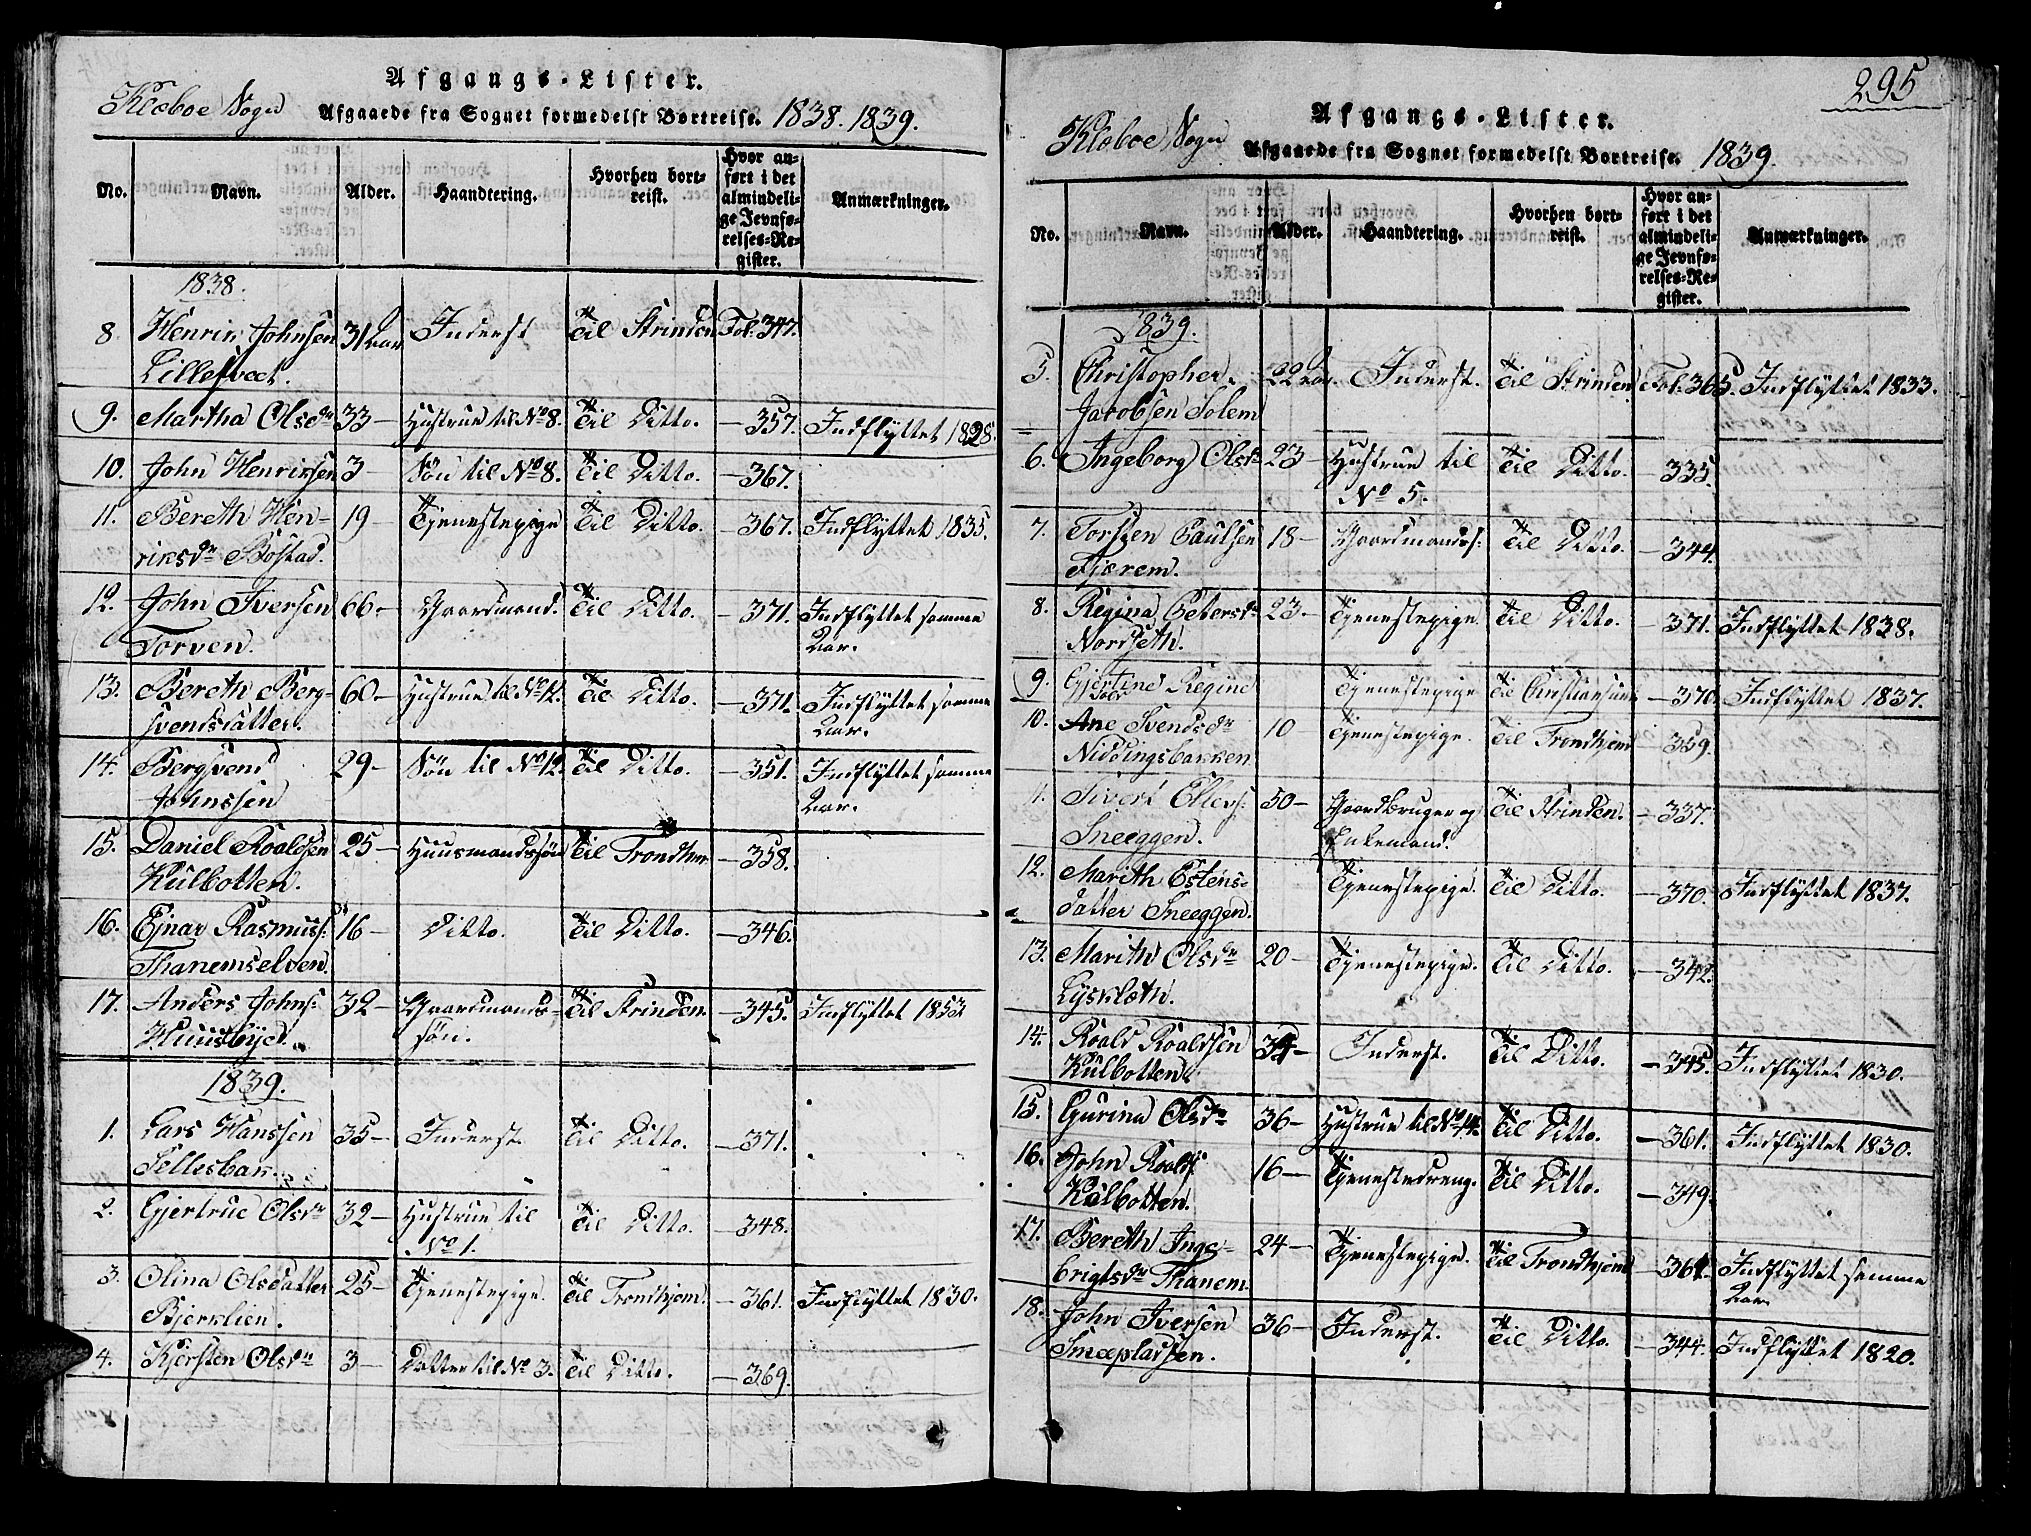 Afgangs-Lister.
Klæboe Sogn
Afgaaede fra Sognet formedelst Bortreise. 1838. 1839.
No. Navn. Alder. Haandtering. Hvorhen bortreist. Hvor anført i det almindelige Jevnførelses-Register. Anmærkninger.
1838.
8. Henrik Johnsen 31 Aar Inderst Til Strinden Fol. 347.
Lillesveet.
9. Martha Olsdr 33 — Hustrue til No 8. Til Ditto. — 357. Indflyttet 1828.
10. John Henriksen 3 — Søn til No 8. Til Ditto. — 367.
11. Bereth Hen- 19 — Tjenestepige Til Ditto. — 367. Indflyttet 1835.
riksdr Bostad.
12. John Iversen 66 — Gaardmand. Til Ditto. — 371. Indflyttet samme
Torven. Aar.
13. Bereth Berg- 60 — Hustrue til No 12. Til Ditto. — 371. Indflyttet samme
svendsdatter. Aar.
14. Bergsvend 29 — Søn til No 12. Til Ditto. — 351. Indflyttet samme
Johnssen Aar.
15. Daniel Roaldsen 25 — Huusmandssøn Til Trondhm — 358.
Kulbotten.
16. Ejnar Rasmuss: 16 — Ditto. Til Ditto. — 346.
Thanemselven.
17. Anders Johns: 32 — Gaardmands- Til Strinden. — 345. Indflyttet 1853
Huusbye. søn.
1839.
1. Lars Hanssen 35 — Inderst Til Ditto. — 371.
Sellesbak.
2. Gjertrue Olsdr 32 — Hustrue til Til Ditto. — 348.
No 1.
3. Olina Olsdatter 25 — Tjenestepige. Til Trondhjem. — 361. Indflyttet 1830.
Bjerklien.
4. Kjersten Olsdr 3 — Datter til No 3. Til Ditto. — 369.
295
Afgangs-Lister.
Klæboe Sogn
Afgaaede fra Sognet formedelst Bortreise. 1839.
No. Navn. Alder. Haandtering. Hvorhen bortreist. Hvor anført i det almindelige Jevnførelses-Register. Anmærkninger.
1839.
5. Christopher 22 Aar. Inderst. Til Strinden Fol. 365. Indflyttet 1833.
Jacobsen Solem
6. Ingeborg Olsdr 23 — Hustrue til Til Ditto. — 335.
No 5.
7. Torsten Paulsen 18 — Gaardmands: Til Ditto. — 344.
Fjærem.
8. Regina Petersdr 23 — Tjenestepige Til Ditto. — 371. Indflyttet 1838.
Nordseth.
9. Gjertine Regine Tjenestepige Til Christiansund — 370. Indflyttet 1837.
10. Ane Svendsdr 10 — Tjenestepige. Til Trondhjem — 359.
Niddingsbakken
11. Sivert Ellevs: 50 — Gaardbruger og Til Strinden. — 337.
Sneeggen. Enkemand.
12. Marith Estens- Tjenestepige. Til Ditto. — 370. Indflyttet 1837.
datter Sneeggen.
13. Marith Olsdr 20 — Tjenestepige. Til Ditto. — 342.
Lysklæth.
14. Roald Roaldsen 34 — Inderst. Til Ditto. — 345. Indflyttet 1830.
Kulbotten.
15. Gurina Olsdr 36 — Hustrue til No 14. Til Ditto. — 361. Indflyttet 1830.
16. John Roalds 16 — Tjenestedreng. Til Ditto. — 349.
Kulbotten.
17. Bereth Inge- 24 — Tjenestepige. Til Trondhjem — 361. Indflyttet samme
brigtsdr Thanem. Aar.
18. John Iversen 36 — Inderst. Til Ditto. — 344. Indflyttet 1820.
Smeepladsen.